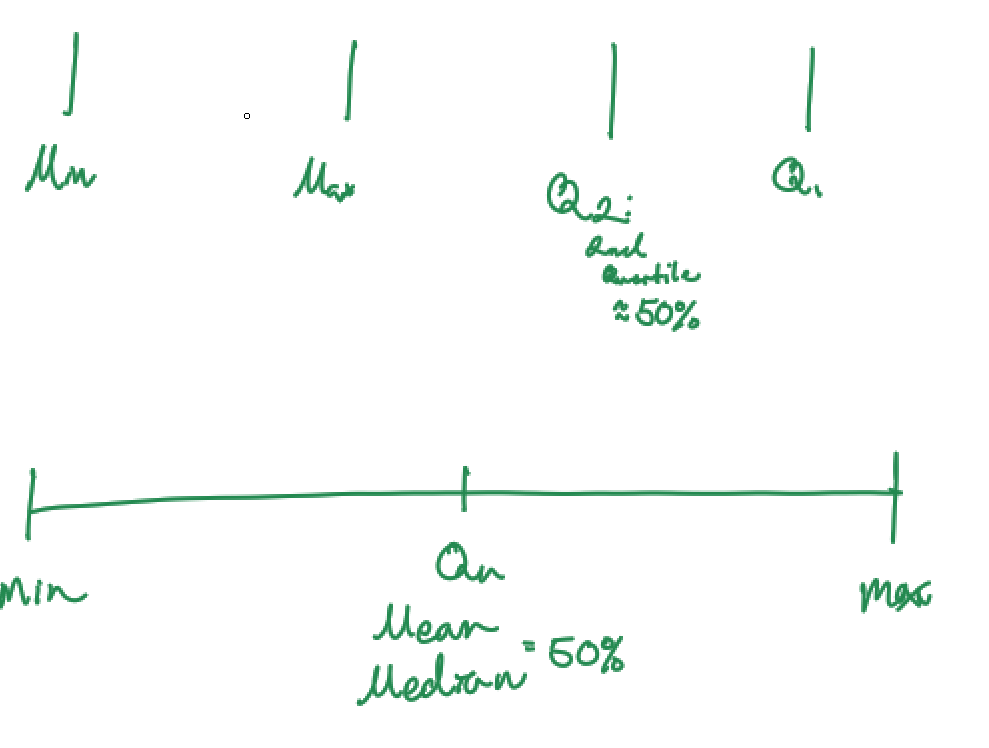 Min
Max
Q2:
2nd
Quartile
≈50%
Q1
Min
Max
Mean
Median = 50%